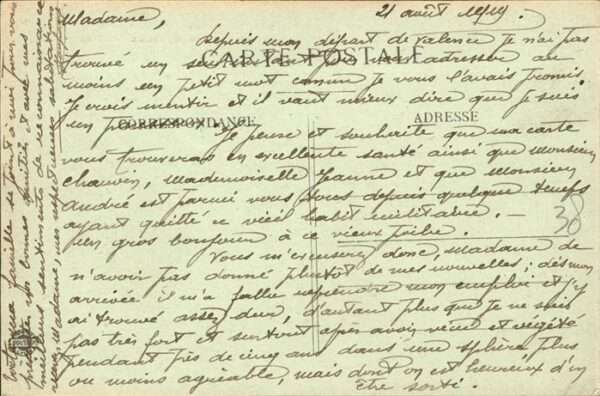 21 août 1919.
Madame,
Depuis mon départ de Valence je n'ai pas
CARTE POSTALE
trouvé un seul instant pour vous adresser au
moins un petit mot comme je vous l'avais promis.
Je crois mentir et il vaut mieux dire que je suis
un paresseux.
CORRESPONDANCE
ADRESSE
Je pense et souhaite que ma carte
vous trouvera en excellente santé ainsi que Monsieur
Chauvin, Mademoiselle Jeanne et que Monsieur
André est parmi vous tous depuis quelque temps
ayant quitté ce vieil habit militaire. —
un gros bonjour à ce vieux poilu.
38
Vous m'excuserez donc, Madame de
n'avoir pas donné plutôt de mes nouvelles ; dès mon
arrivée il m'a fallu reprendre mon emploi et j'y
ai trouvé assez dur, d'autant plus que je ne suis
pas très fort et surtout après avoir vécu et végété
pendant près de cinq ans dans une sphère plus
ou moins agréable, mais dont on est heureux d'en
être sorti.
Toute ma famille se joint à moi pour vous
remercier de vos bonnes et avec mes
meilleurs sentiments de reconnaissance
Madame, mes respectueuses salutations